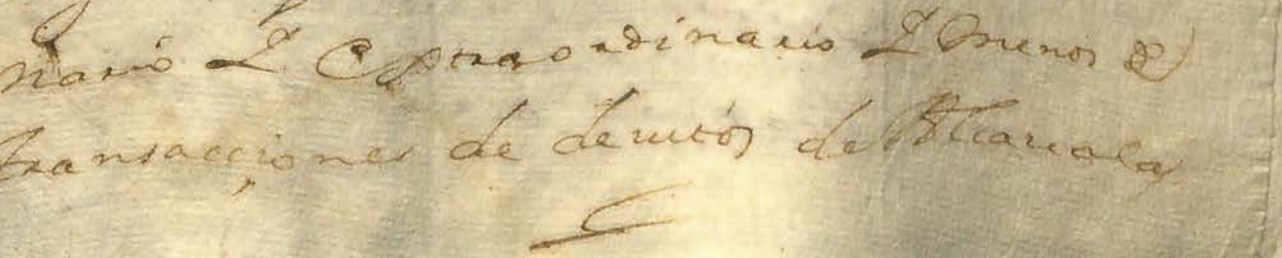 nario Y Extraordinario Y menos de
transacçiones de devitos de Alcavala